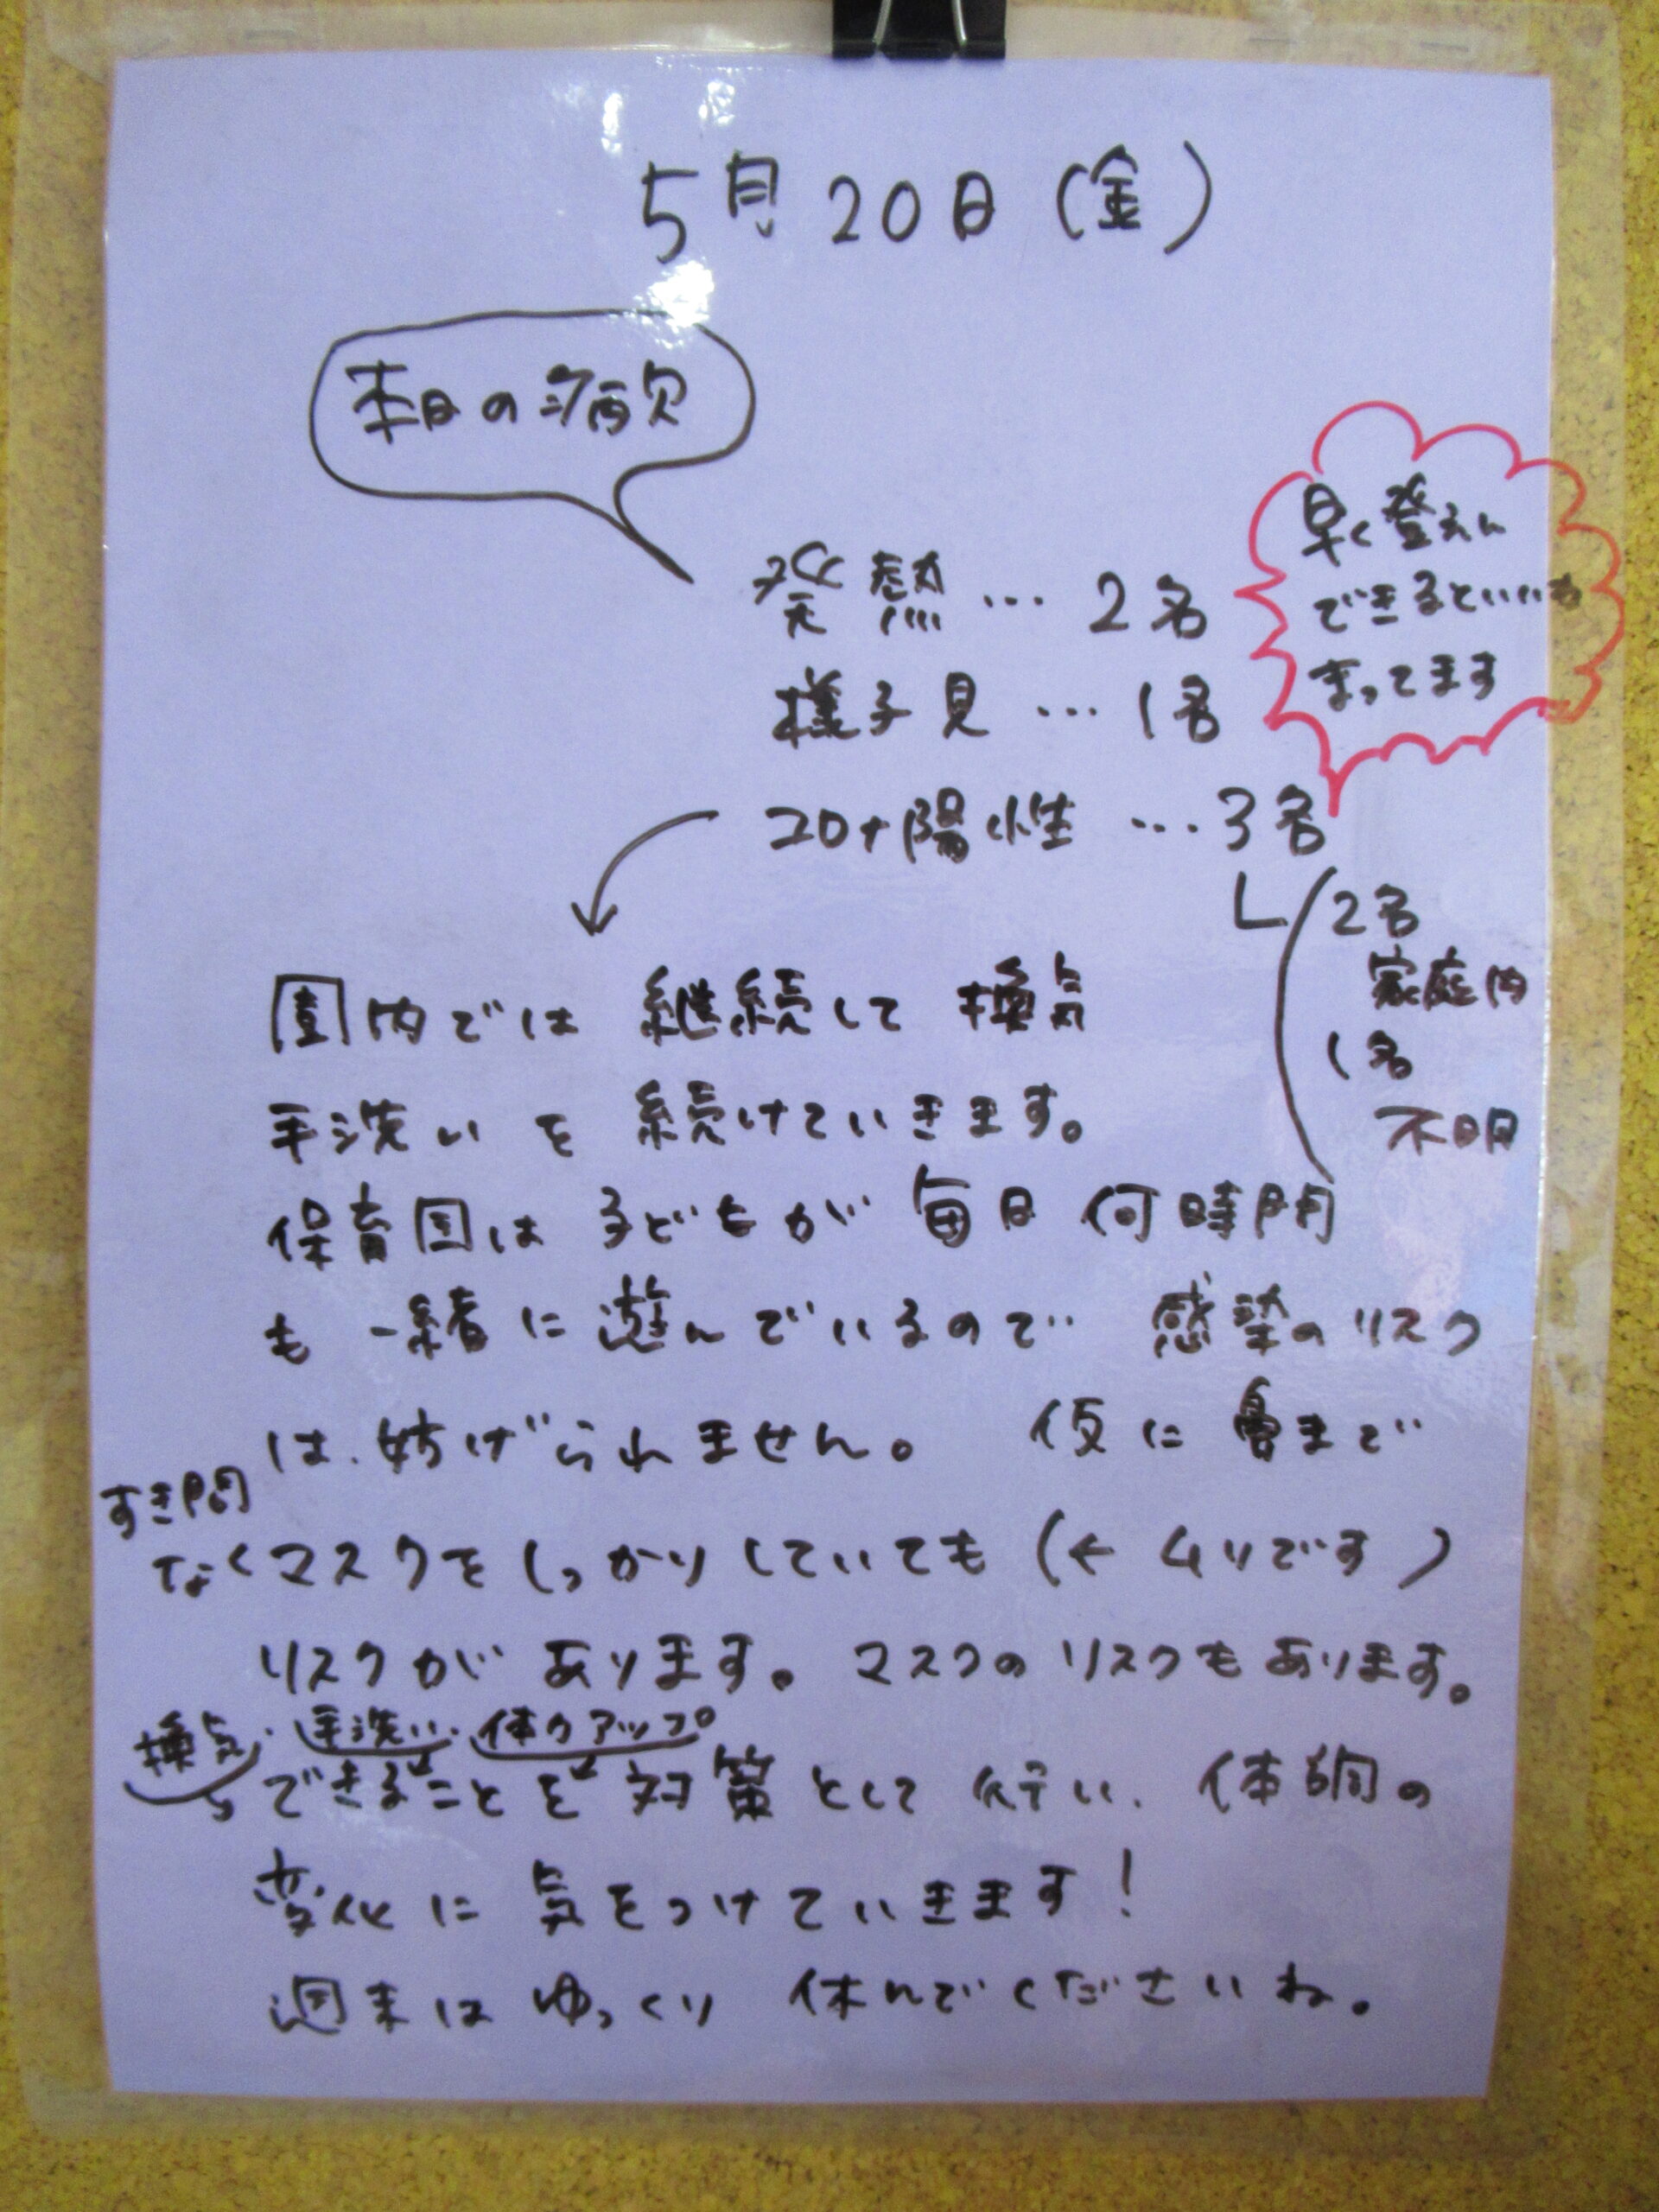 5月20日(金)
本日の病欠
発熱…2名
様子見…1名
コロナ陽性…3名
早く登えん
できるといいな
まってます
2名
家庭内
1名
不明
園内では継続して換気
手洗いを続けていきます。
保育園は子どもが毎日何時間
も一緒に遊んでいるので感染のリスク
は、妨げられません。仮に鼻まで
すき間
なくマスクをしっかりしていても(←ムリです)
リスクがあります。マスクのリスクもあります。
換気・手洗い・体力アップ
できることを対策として行い、体調の
変化に気をつけていきます!
週末はゆっくり休んでくださいね。